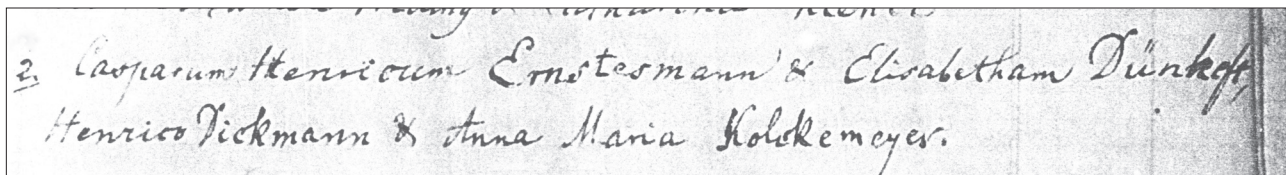 & Catharina
2. Casparum Henricum Ernstesmann & Elisabetham Dünkeft,
Henrico Dickmann & Anna Maria Kolckemeyer.